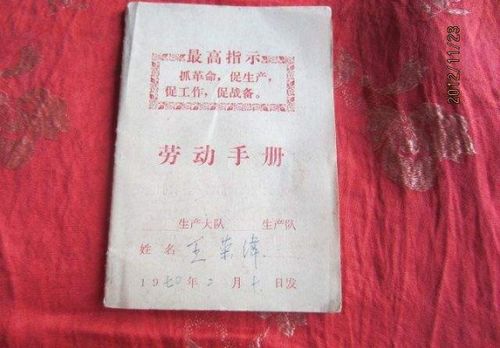 最高指示
抓革命，促生产，
促工作，促战备。
劳动手册
生产大队 生产队
姓名 王荣伟
1970年2月十日发
2012/11/23